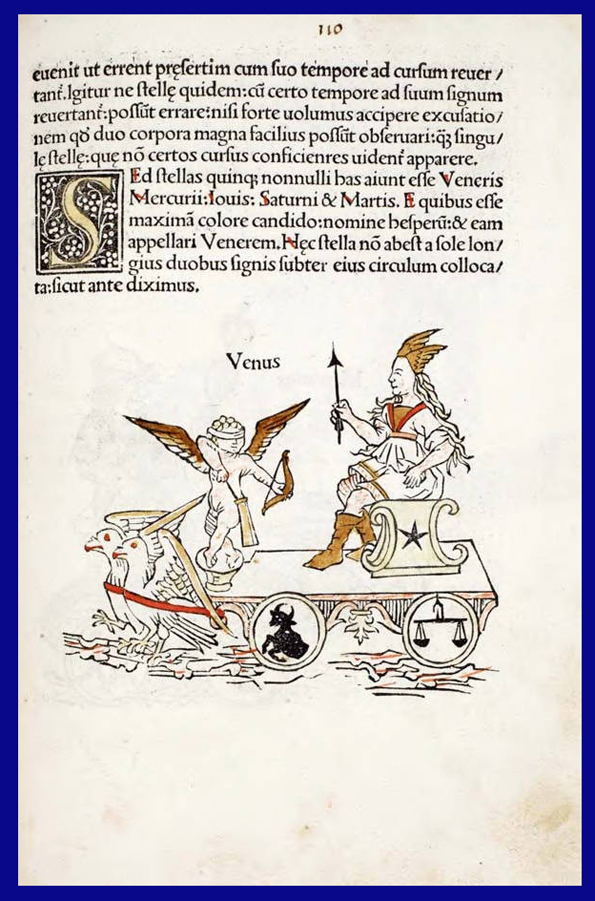 110
euenit ut errent pręſertim cum ſuo tempore ad curſum reuer /
tant̃.Igitur ne ſtellę quidem:cũ certo tempore ad ſuum ſignum
reuertant̃:poſſũt errare:niſi forte uolumus accipere excuſatio/
nem qđ duo corpora magna facilius poſſũt obſeruari:q̃ ſingu/
lę ſtellę:quę nõ certos curſus conficienres uident̃ apparere.
SEd ſtellas quinq; nonnulli has aiunt eſſe Veneris
Mercurii:Iouis: Saturni & Martis. E quibus eſſe
maximã colore candido:nomine heſperũ:& eam
appellari Venerem.Hęc ſtella nõ abeſt a ſole lon/
gius duobus ſignis ſubter eius circulum colloca/
ta:ſicut ante diximus.
Venus